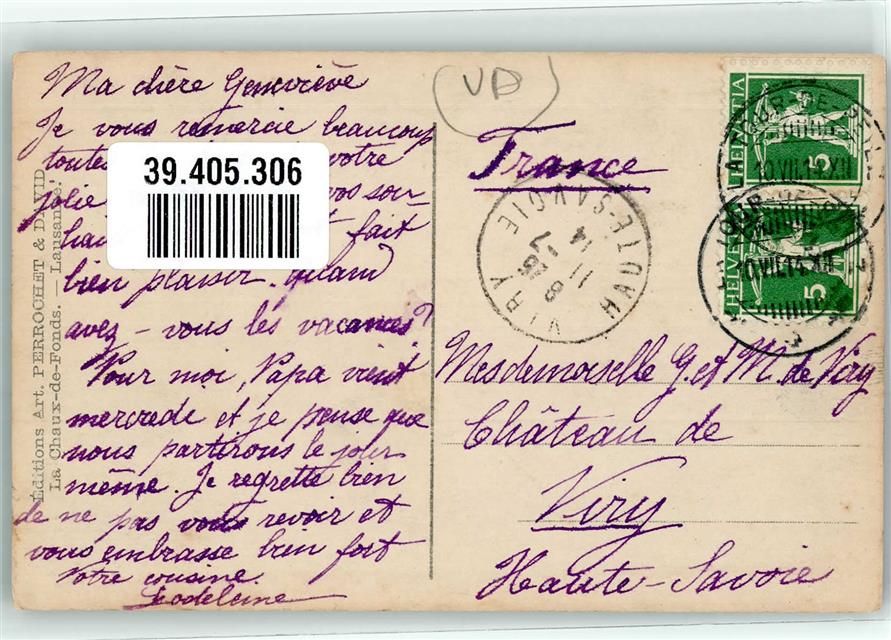 Ma chère Geneviève
Je vous remercie beaucoup
toutes votre
jolie vos sou-
hai fait
bien plaisir. Quand
avez-vous les vacances?
Pour moi, Papa vient
mercredi et je pense que
nous partirons le jour
même. Je regrette bien
de ne pas vous revoir et
vous embrasse bien fort
Votre cousine.
39.405.306
Éditions Art. PERROCHET & DAVID
La Chaux-de-Fonds. — Lausanne.
VD
France
VIRY HAUTE-SAVOIE
11 -7
14
HELVETIA 5
HELVETIA 5
LA TOUR-DE-PEILZ
10.VII.14.XII
LA TOUR-DE-PEILZ
10.VII.14.XII
Mesdemoiselle G. et M. de Viry
Château de
Viry
Haute-Savoie